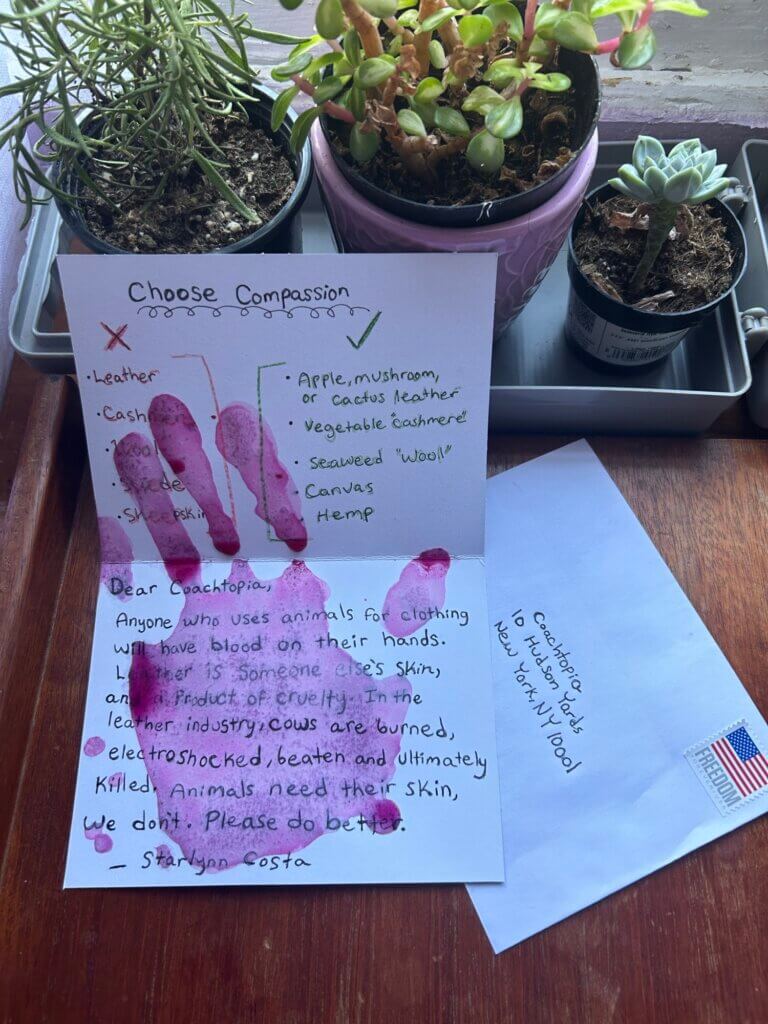 Choose Compassion
• Leather
• Cashmere
• Wool
• Suede
• Sheepskin
• Apple, mushroom,
or cactus leather
• Vegetable "cashmere"
• Seaweed "Wool"
• Canvas
• Hemp
Dear Coachtopia,
Anyone who uses animals for clothing
will have blood on their hands.
Leather is someone else's skin,
and a product of cruelty. In the
leather industry, cows are burned,
electroshocked, beaten and ultimately
killed. Animals need their skin,
we don't. Please do better.
— Starlynn Costa
Coachtopia
10 Hudson Yards
New York, NY 10001
FREEDOM